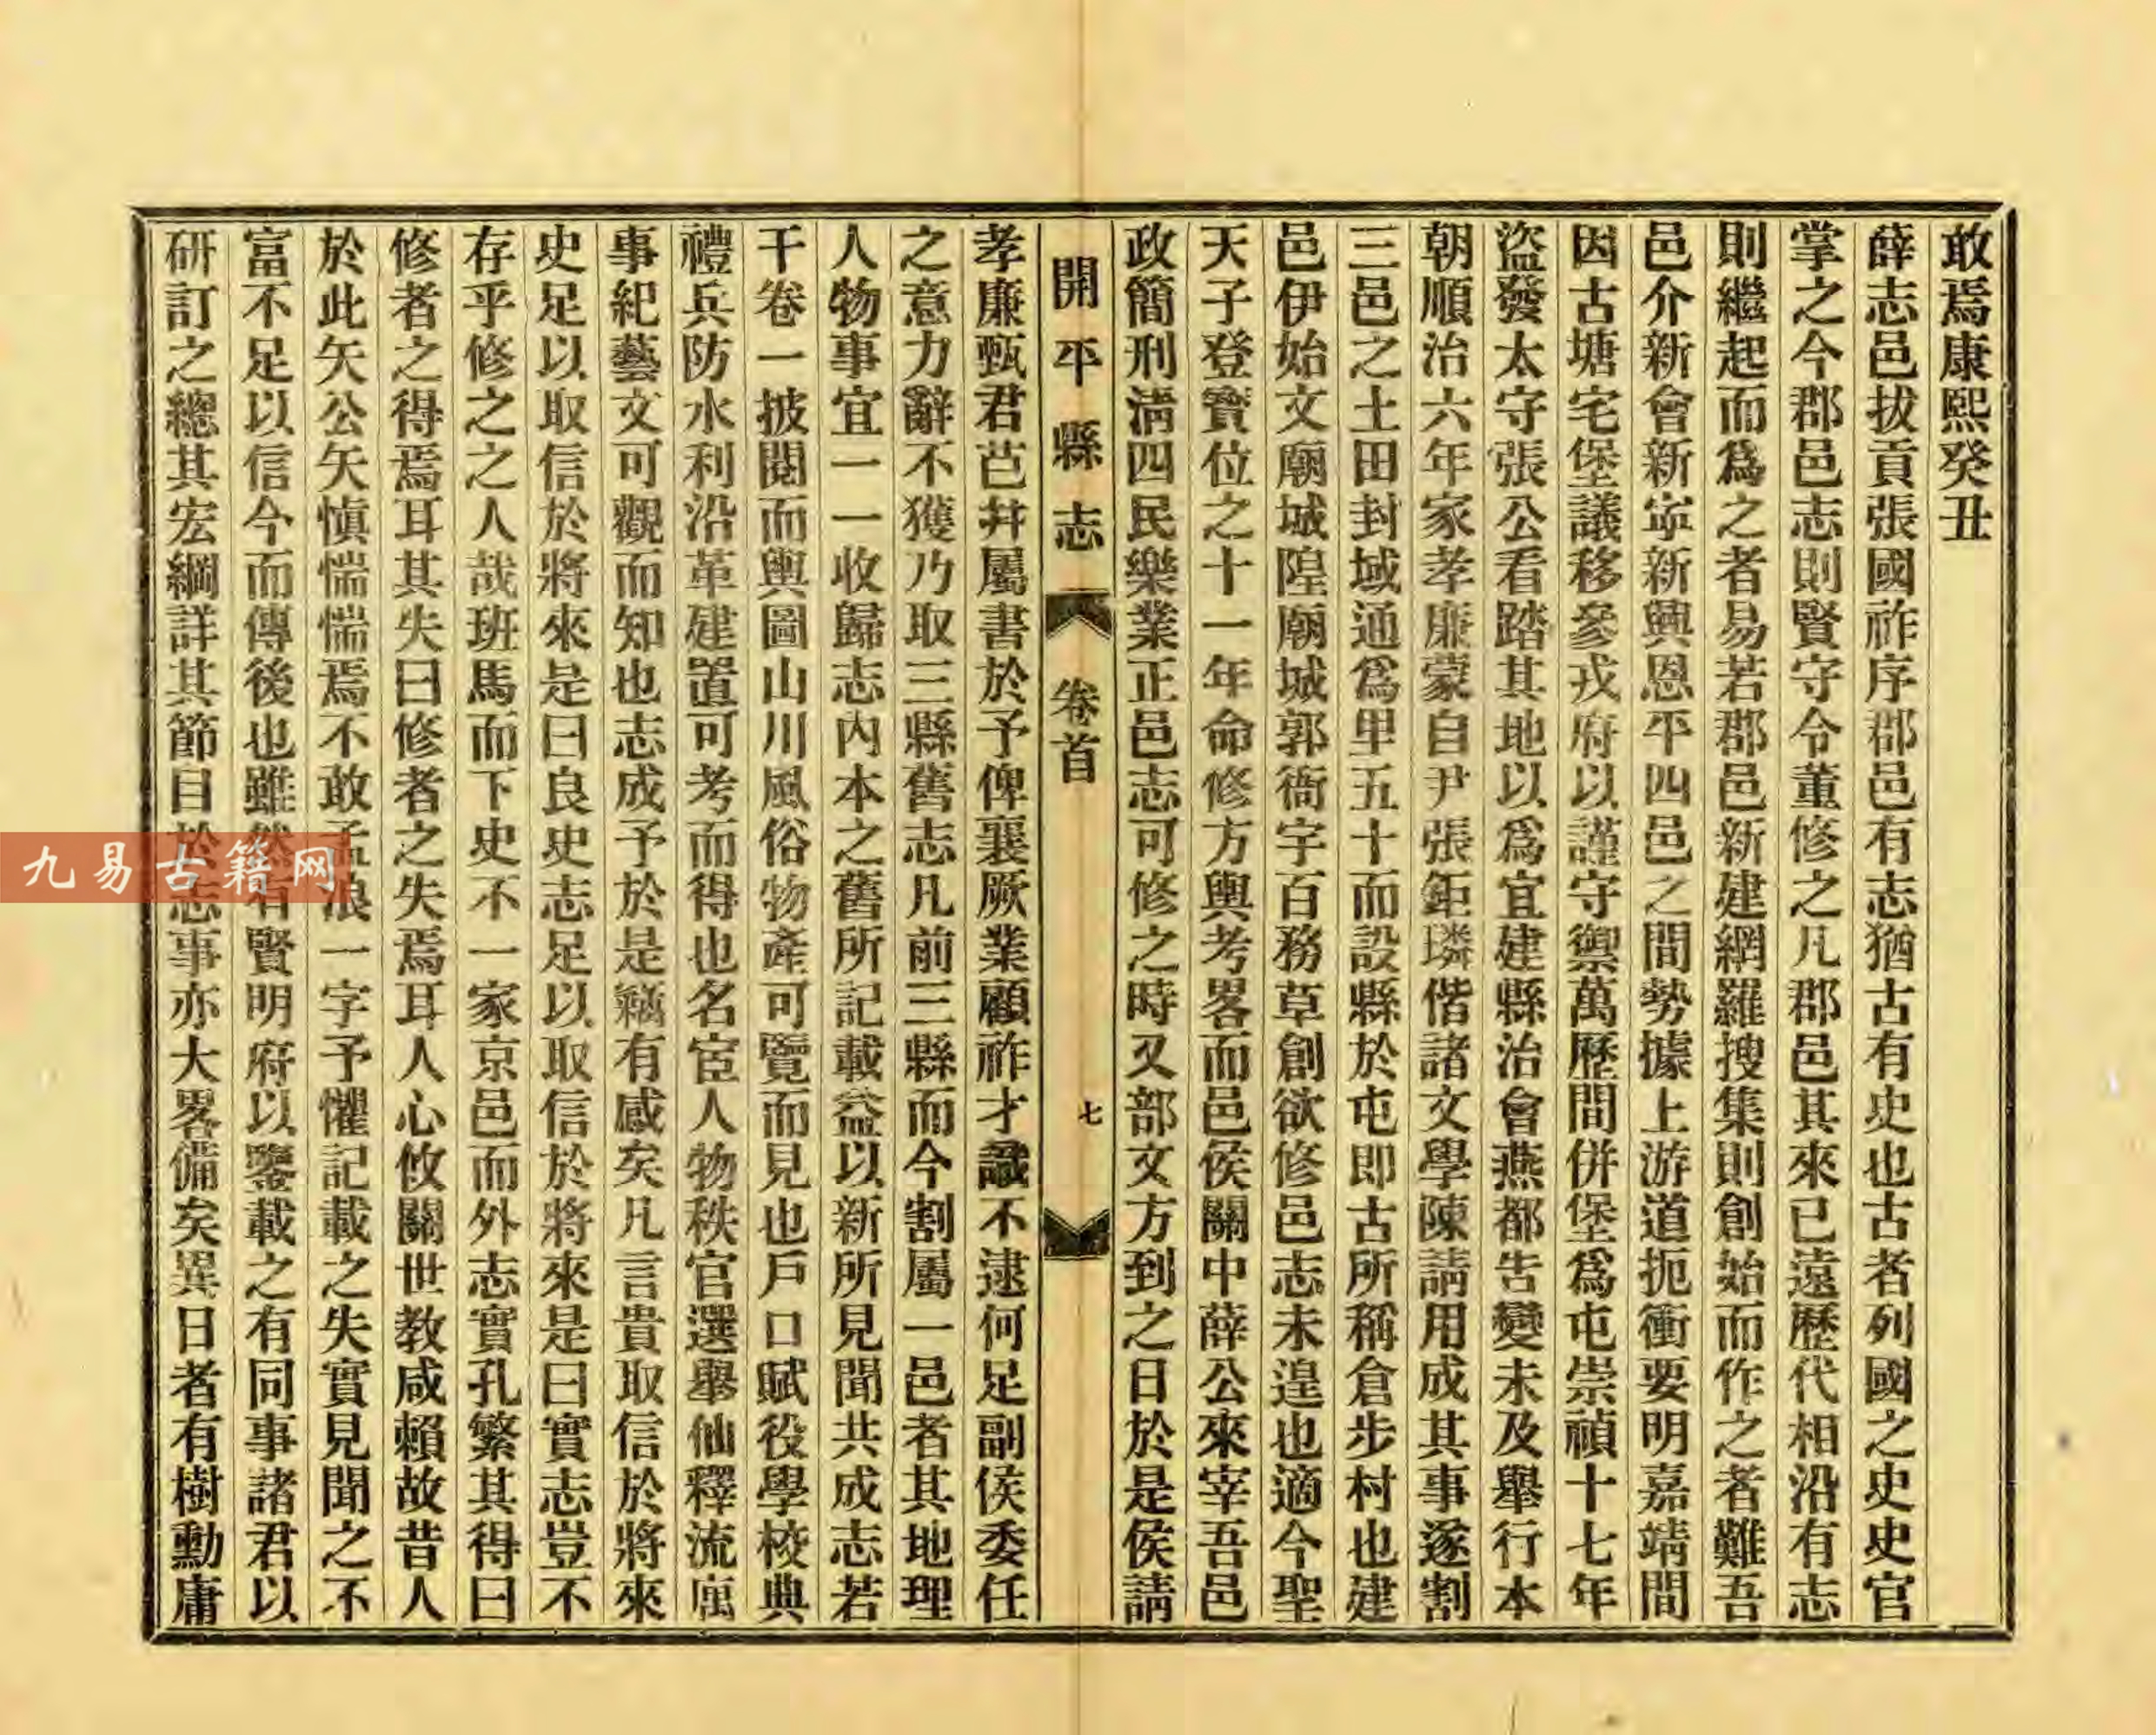 敢焉康熙癸丑
薛志邑拔貢張國祚序郡邑有志猶古有史也古者列國之史史官
掌之今郡邑志則賢守令董修之凡郡邑其來已遠歷代相沿有志
則繼起而爲之者易若郡邑新建網羅搜集則創始而作之者難吾
邑介新會新寧新興恩平四邑之間勢據上游道扼衝要明嘉靖間
因古塘宅堡議移參戎府以謹守禦萬歷間併堡爲屯崇禎十七年
盜發太守張公看踏其地以爲宜建縣治會燕都告變未及舉行本
朝順治六年家孝廉蒙自尹張鉅璘偕諸文學陳請用成其事遂割
三邑之土田封域通爲里五十而設縣於屯即古所稱倉步村也建
邑伊始文廟城隍廟城郭衙宇百務草創欲修邑志未遑也適今聖
天子登寶位之十一年命修方輿考畧而邑侯關中薛公來宰吾邑
政簡刑淸四民樂業正邑志可修之時又部文方到之日於是侯請
開平縣志 卷首 七
孝廉甄君芑井屬書於予俾襄厥業顧祚才識不逮何足副侯委任
之意力辭不獲乃取三縣舊志凡前三縣而今割屬一邑者其地理
人物事宜一一收歸志內本之舊所記載益以新所見聞共成志若
干卷一披閱而輿圖山川風俗物產可覽而見也戶口賦役學校典
禮兵防水利沿革建置可考而得也名宦人物秩官選舉仙釋流寓
事紀藝文可觀而知也志成予於是竊有感矣凡言貴取信於將來
史足以取信於將來是曰良史志足以取信於將來是曰實志豈不
存乎修之之人哉班馬而下史不一家京邑而外志實孔繁其得曰
修者之得焉耳其失曰修者之失焉耳人心攸關世教咸賴故昔人
於此矢公矢愼惴惴焉不敢孟浪一字予懼記載之失實見聞之不
富不足以信今而傳後也雖然有賢明府以鑒載之有同事諸君以
研訂之總其宏綱詳其節目於志事亦大畧備矣異日者有樹勳庸
九易古籍网